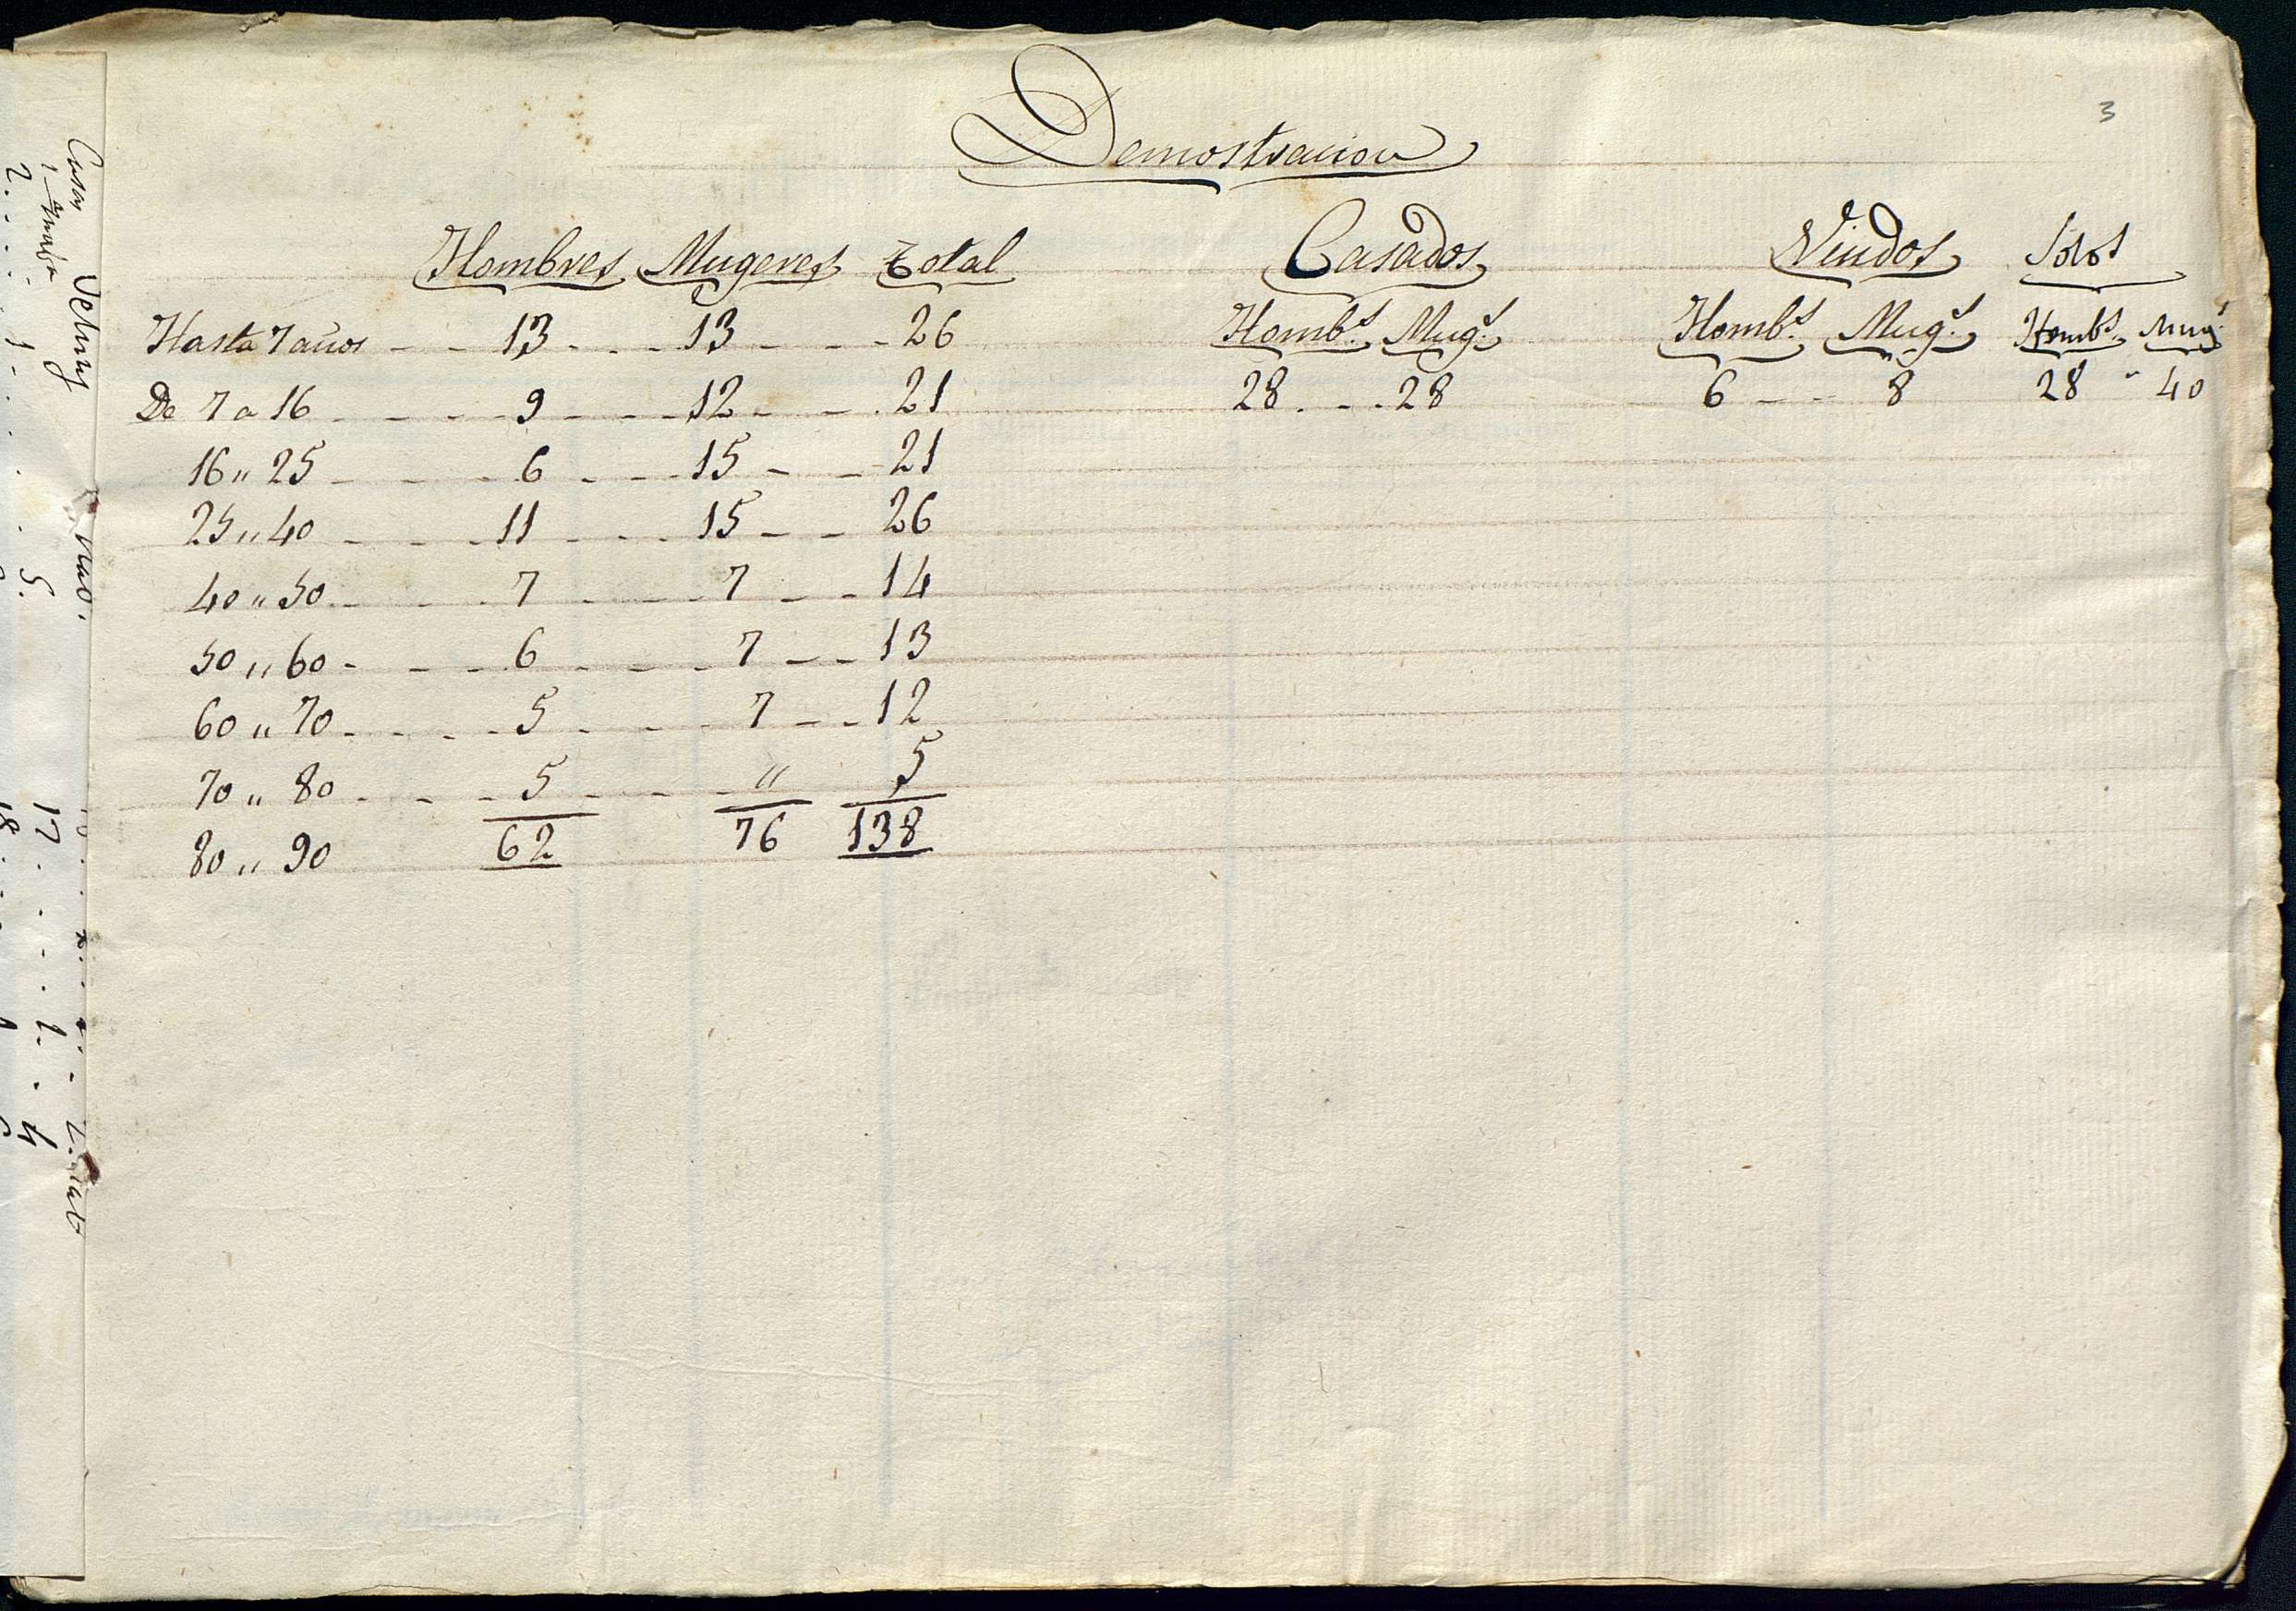 3
Demostracion
Hombres Mugeres Total Casados Viudos Solos
Hasta 7 años - - 13 - - - 13 - - - 26 Hombs. Mugs. Hombs. Mugs. Hombs. Mugs.
De 7 a 16 - - - - 9 - - - 12 - - - 21 28 - - - 28 6 - - - 8 28 " 40
16 " 25 - - - - 6 - - - 15 - - - 21
25 " 40 - - - 11 - - - 15 - - 26
40 " 50 - - - - 7 - - - - 7 - - 14
50 " 60 - - - 6 - - - - 7 - - 13
60 " 70 - - - - 5 - - - 7 - - 12
70 " 80 - - - 5 - - - - " 5
80 " 90 62 76 138
Casas
17
18
5.
4